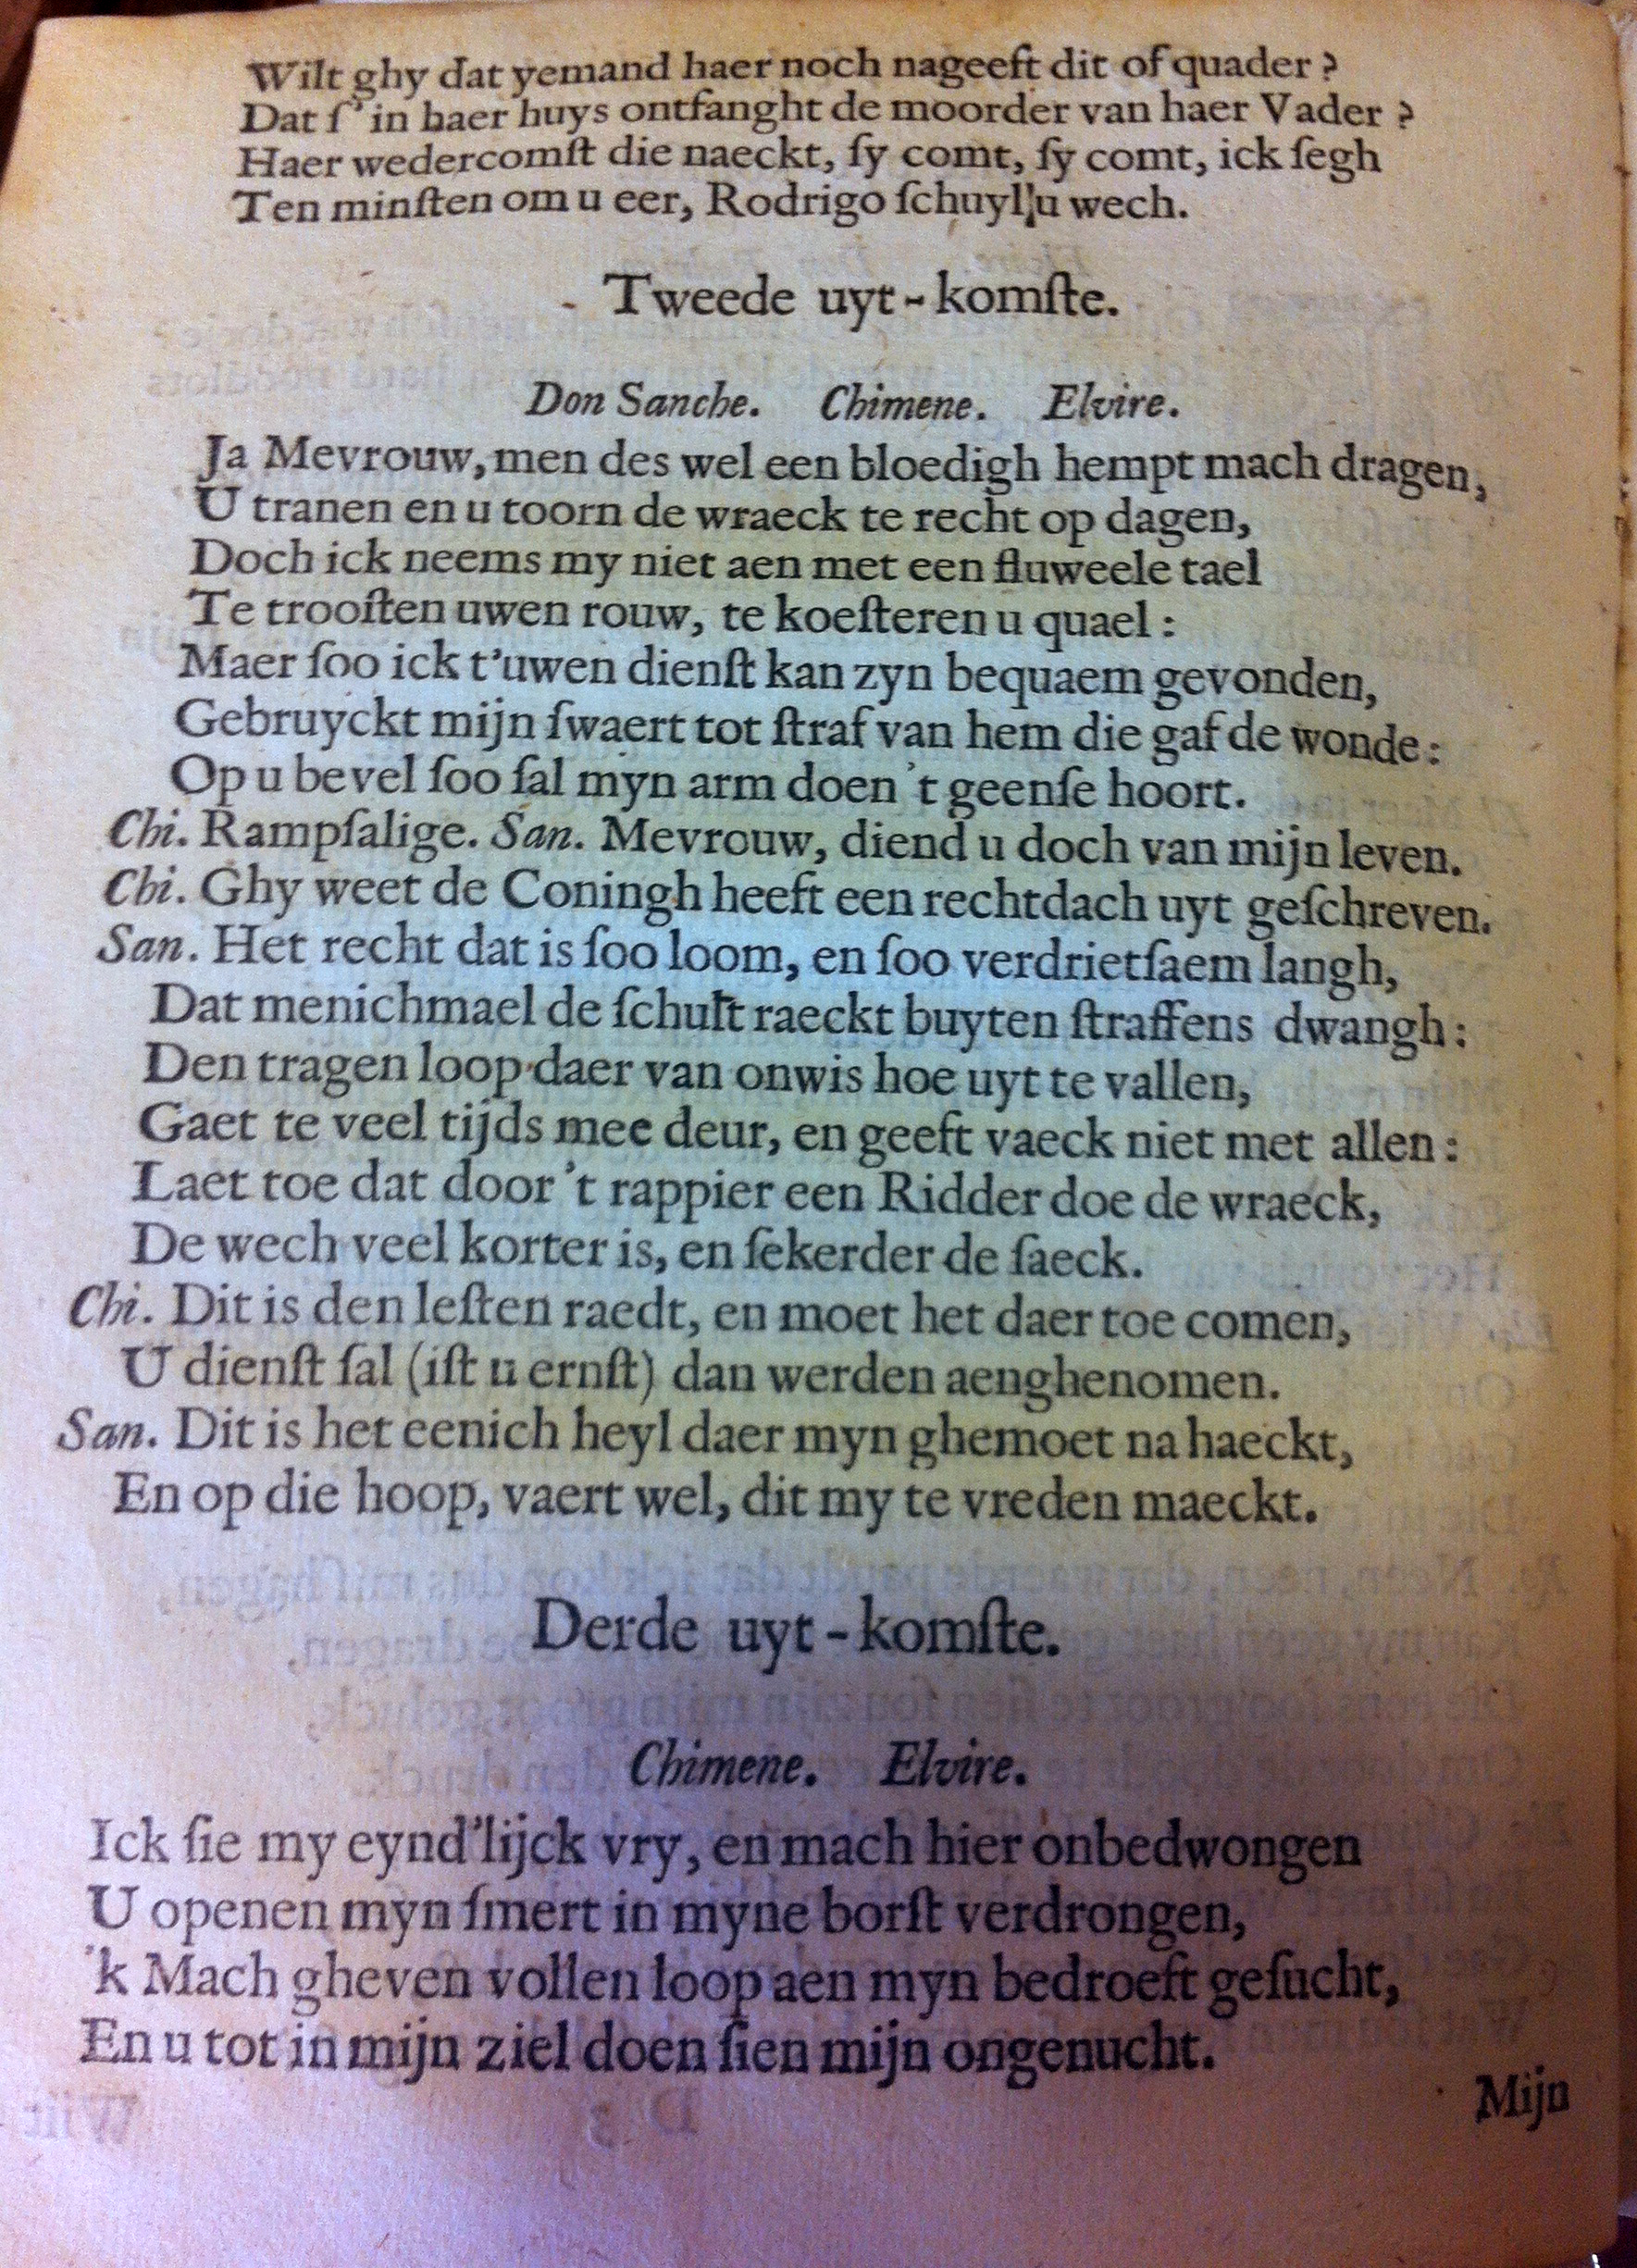 Wilt ghy dat yemand haer noch nageeft dit of quader ?
Dat ſ'in haer huys ontfanght de moorder van haer Vader ?
Haer wedercomſt die naeckt, ſy comt, ſy comt, ick ſegh
Ten minſten om u eer, Rodrigo ſchuyl u wech.
Tweede uyt-komſte.
Don Sanche. Chimene. Elvire.
Ja Mevrouw, men des wel een bloedigh hempt mach dragen,
U tranen en u toorn de wraeck te recht op dagen,
Doch ick neems my niet aen met een fluweele tael
Te trooſten uwen rouw, te koeſteren u quael :
Maer ſoo ick t'uwen dienſt kan zyn bequaem gevonden,
Gebruyckt mijn ſwaert tot ſtraf van hem die gaf de wonde :
Op u bevel ſoo ſal myn arm doen 't geenſe hoort.
Chi. Rampſalige. San. Mevrouw, diend u doch van mijn leven.
Chi. Ghy weet de Coningh heeft een rechtdach uyt geſchreven.
San. Het recht dat is ſoo loom, en ſoo verdrietſaem langh,
Dat menichmael de ſchult raeckt buyten ſtraffens dwangh :
Den tragen loop daer van onwis hoe uyt te vallen,
Gaet te veel tijds mee deur, en geeft vaeck niet met allen :
Laet toe dat door 't rappier een Ridder doe de wraeck,
De wech veel korter is, en ſekerder de ſaeck.
Chi. Dit is den leſten raedt, en moet het daer toe comen,
U dienſt ſal (iſt u ernſt) dan werden aenghenomen.
San. Dit is het eenich heyl daer myn ghemoet na haeckt,
En op die hoop, vaert wel, dit my te vreden maeckt.
Derde uyt-komſte.
Chimene. Elvire.
Ick ſie my eynd'lijck vry, en mach hier onbedwongen
U openen myn ſmert in myne borſt verdrongen,
'k Mach gheven vollen loop aen myn bedroeft geſucht,
En u tot in mijn ziel doen ſien mijn ongenucht.
Mijn